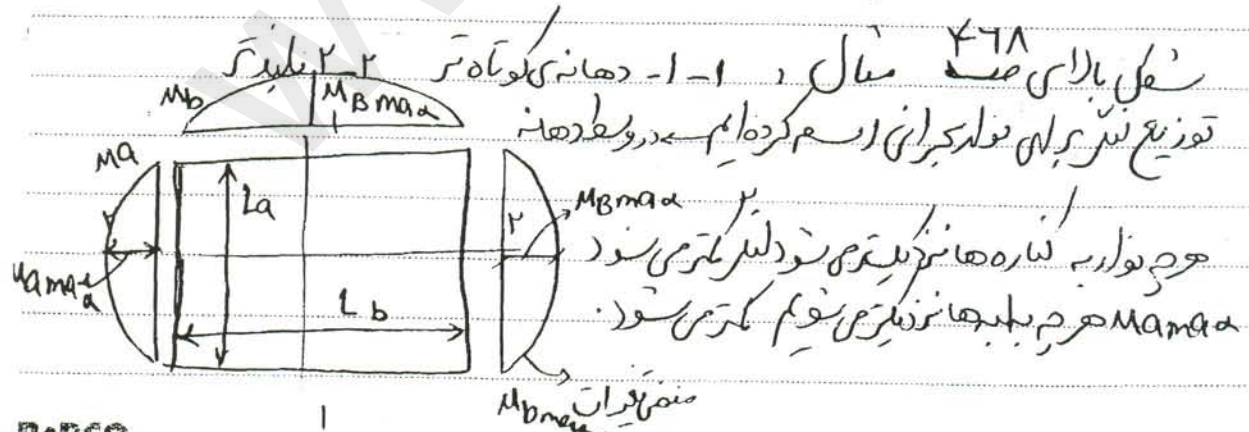 شکل بالای صـ ۴۶۸ مثال ، ۱-۱- دهانه‌ی کوتاه‌تر ۲-۲ بلندتر
توزیع لنگر برای نوار بحرانی رسم کرده‌ایم در وسط دهانه
هرچه نوار به کناره‌ها نزدیکتر می‌شود لنگر کمتر می‌شود
Mamax هرچه به لبه‌ها نزدیکتر می‌شویم کمتر می‌شود.
Mb
MBmax
۱
Ma
La
۲
MBmax
Mamax
Lb
منحنی تغییرات
Mbmax
۱
PAPCO